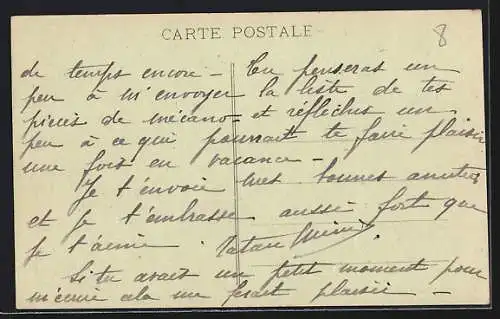 CARTE POSTALE
8
de temps encore - Tu penseras un
peu à m'envoyer la liste de tes
pièces de mécano - et réfléchis un
peu à ce qui pourrait te faire plaisir
une fois en vacance -
Je t'envoie mes bonnes amitiés
et je t'embrasse aussi fort que
je t'aime.
Si tu avait un petit moment pour
m'écrire cela me ferait plaisir -